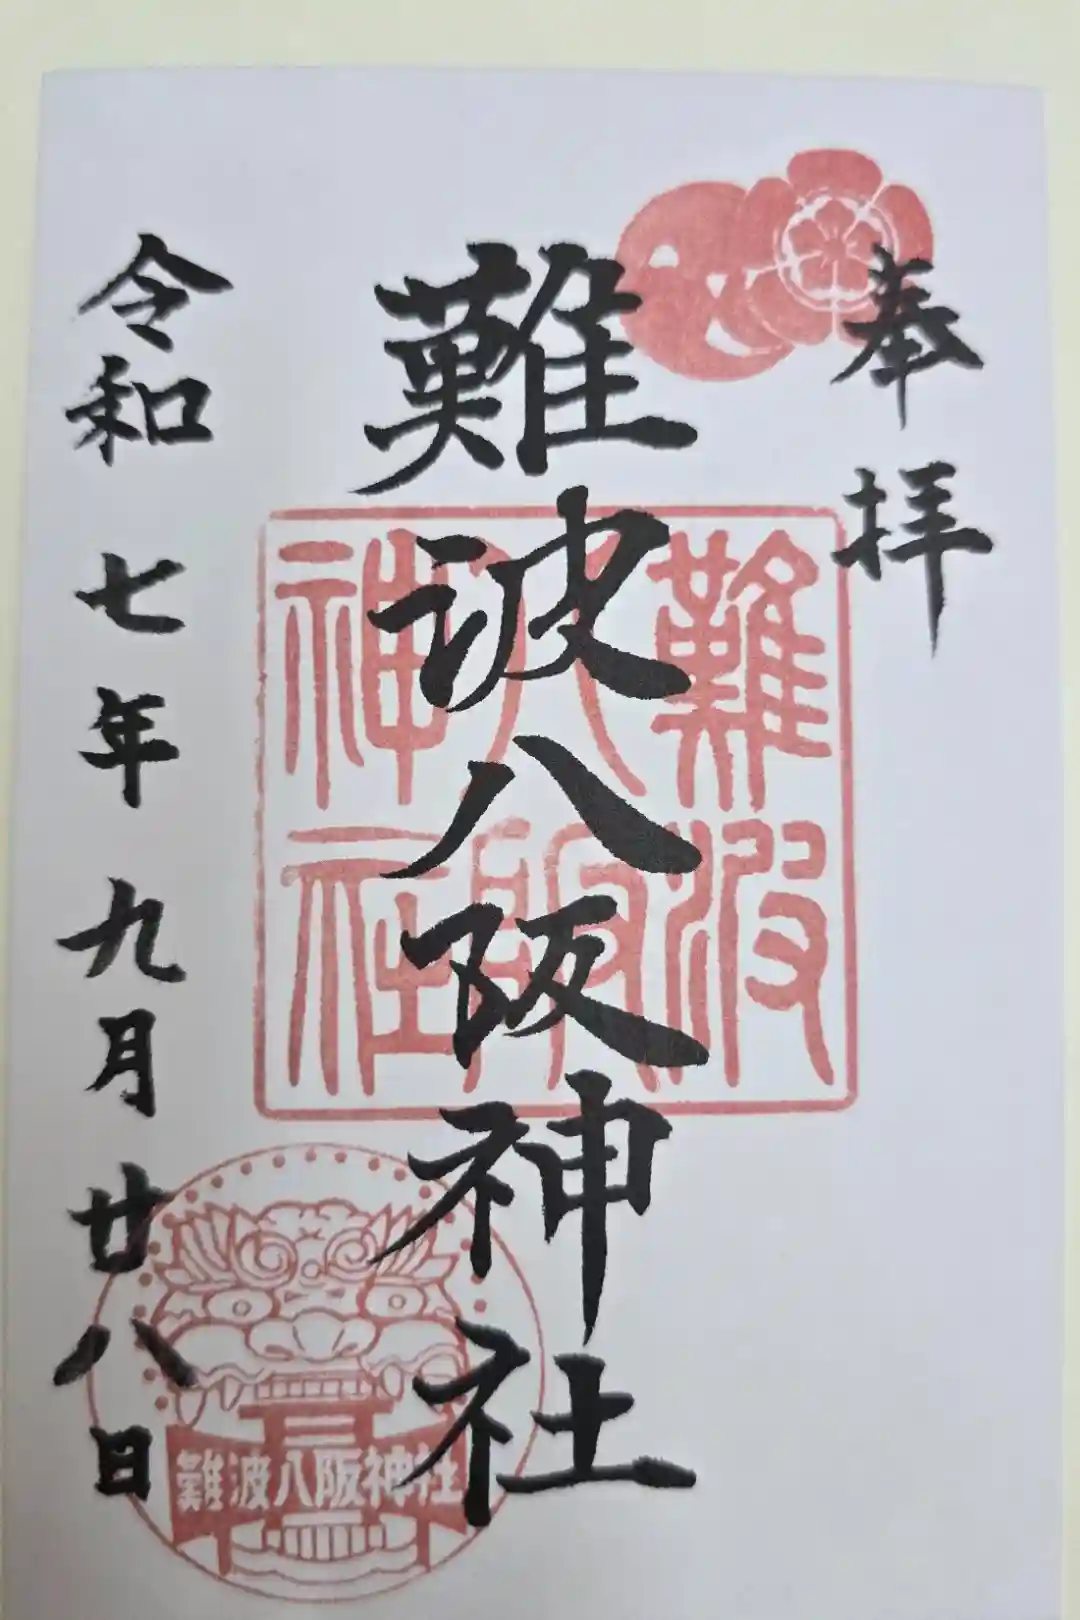 奉拝
難波八阪神社
令和七年九月廿八日
難波
八阪
神社
難波八阪神社